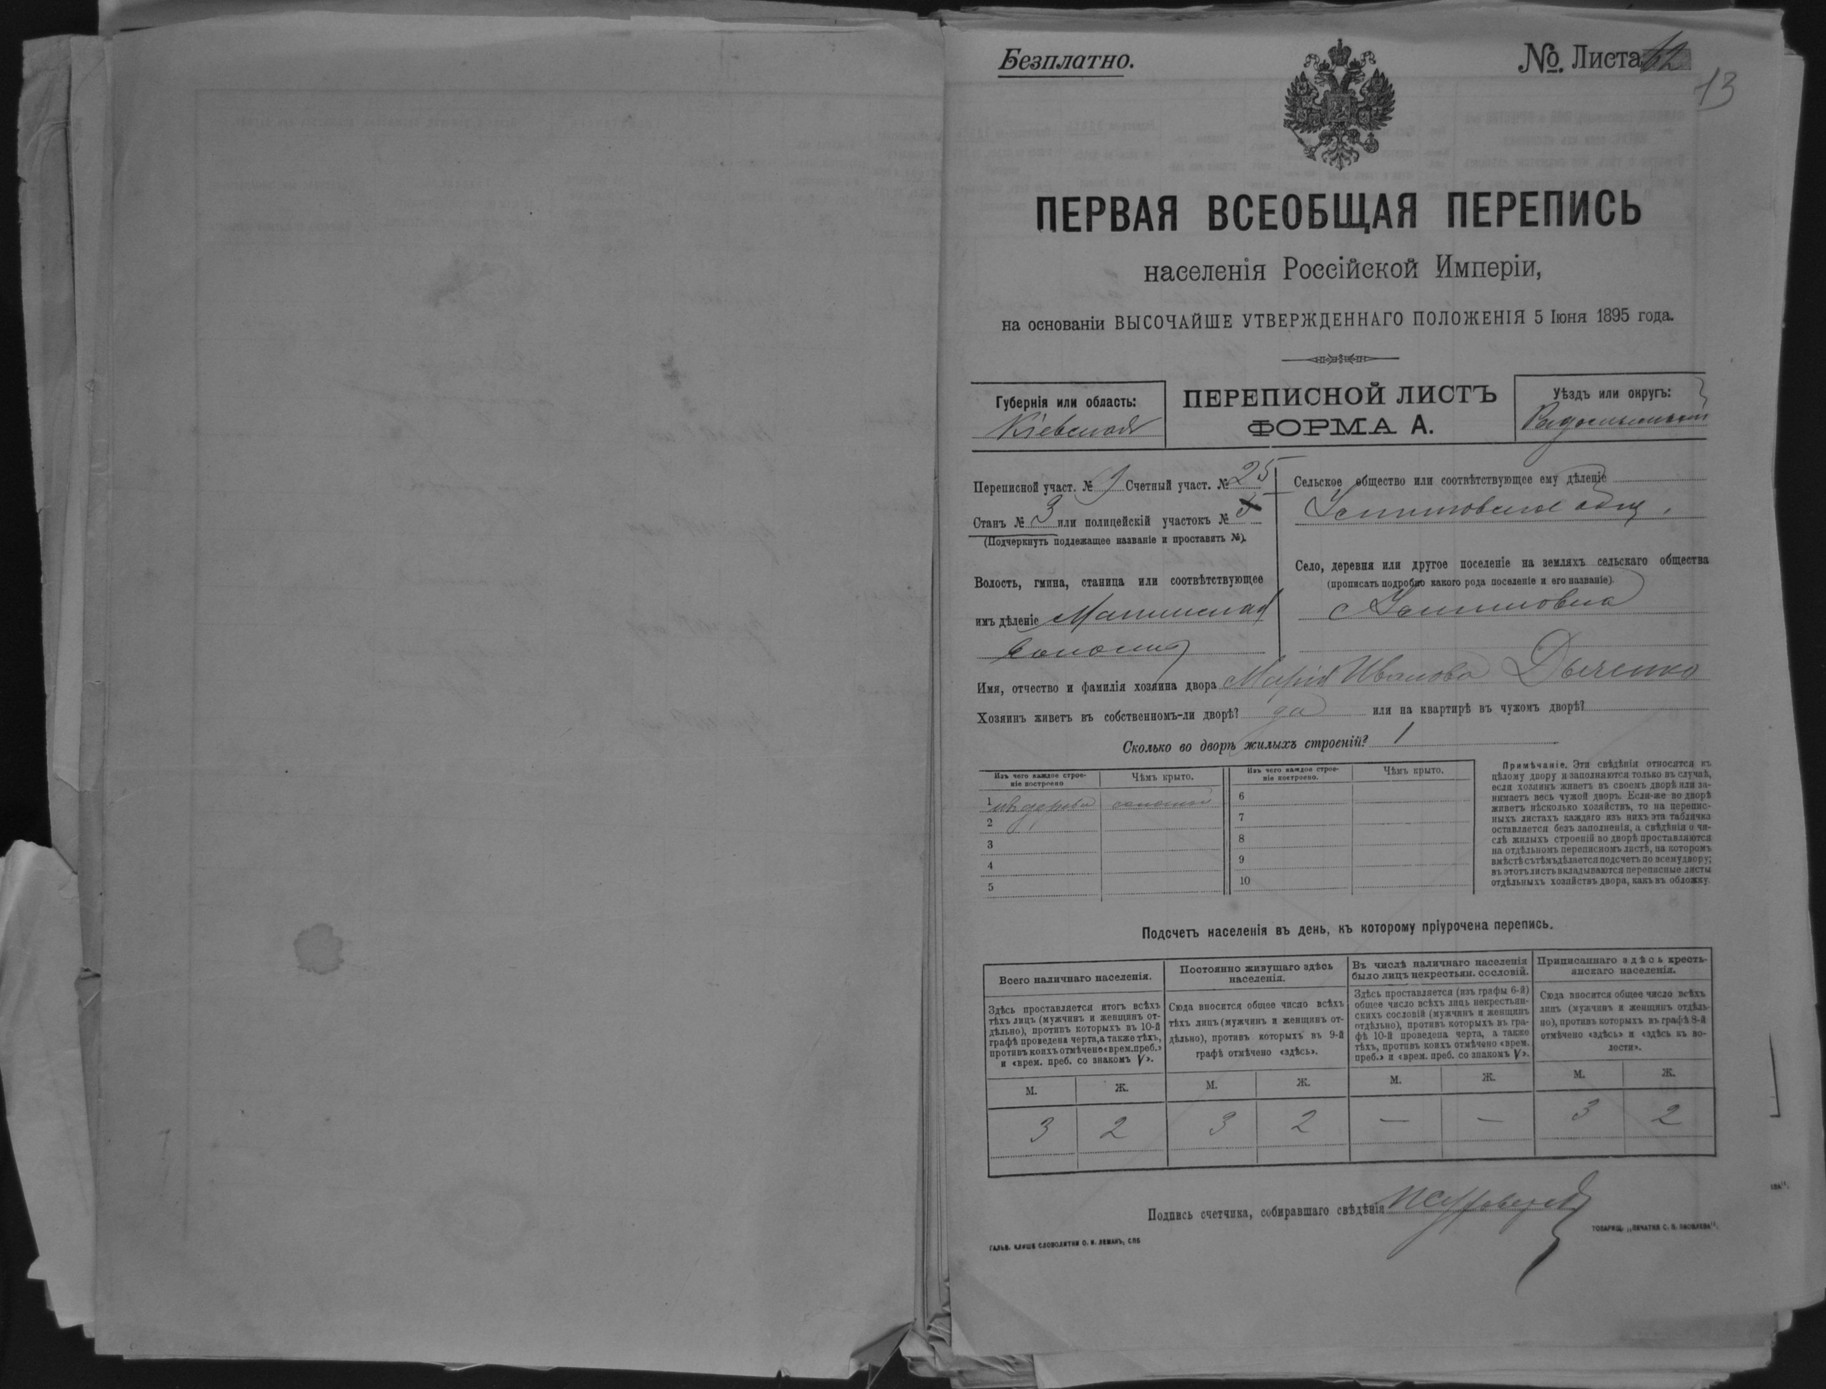 Безплатно.
№. Листа 12
13
ПЕРВАЯ ВСЕОБЩАЯ ПЕРЕПИСЬ
населенія Россійской Имперіи,
на основаніи ВЫСОЧАЙШЕ УТВЕРЖДЕННАГО ПОЛОЖЕНІЯ 5 Іюня 1895 года.
Губернія или область:
Кіевская
ПЕРЕПИСНОЙ ЛИСТЪ
ФОРМА А.
Уѣздъ или округъ:
Радомысльскій
Переписной участ. № 9 Счетный участ. № 25
Станъ № 3 или полицейскій участокъ №
(Подчеркнуть подлежащее названіе и проставить №).
Волость, гмина, станица или соотвѣтствующее
имъ дѣленіе Малинская
волость
Сельское общество или соотвѣтствующее ему дѣленіе
Село, деревня или другое поселеніе на земляхъ сельскаго общества
(прописать подробно какого рода поселеніе и его названіе).
с
Имя, отчество и фамилія хозяина двора Марія Иванова Дяченко
Хозяинъ живетъ въ собственномъ-ли дворѣ? да или на квартирѣ въ чужомъ дворѣ?
Сколько во дворѣ жилыхъ строеній? 1
Изъ чего каждое строеніе построено
Чѣмъ крыто.
Изъ чего каждое строеніе построено.
Чѣмъ крыто.
1 изъ дерева соломой
2
3
4
5
6
7
8
9
10
Примѣчаніе. Эти свѣдѣнія относятся къ
цѣлому двору и заполняются только въ случаѣ,
если хозяинъ живетъ въ своемъ дворѣ или за-
нимаетъ весь чужой дворъ. Если-же во дворѣ
живетъ нѣсколько хозяйствъ, то на перепис-
ныхъ листахъ каждаго изъ нихъ эта табличка
оставляется безъ заполненія, а свѣдѣнія о чи-
слѣ жилыхъ строеній во дворѣ проставляются
на отдѣльномъ переписномъ листѣ, на которомъ
вмѣстѣ съ тѣмъ дѣлается подсчетъ по всему двору;
въ этотъ листъ вкладываются переписные листы
отдѣльныхъ хозяйствъ двора, какъ въ обложку.
Подсчетъ населенія въ день, къ которому пріурочена перепись.
Всего наличнаго населенія.
Здѣсь проставляется итогъ всѣхъ
тѣхъ лицъ (мужчинъ и женщинъ от-
дѣльно), противъ которыхъ въ 10-й
графѣ проведена черта, а также тѣхъ,
противъ коихъ отмѣчено «врем. преб.»
и «врем. преб. со знакомъ V».
Постоянно живущаго здѣсь
населенія.
Сюда вносится общее число всѣхъ
тѣхъ лицъ (мужчинъ и женщинъ от-
дѣльно), противъ которыхъ въ 9-й
графѣ отмѣчено «здѣсь».
Въ числѣ наличнаго населенія
было лицъ некрестьян. сословій.
Здѣсь проставляется (изъ графы 6-й)
общее число всѣхъ лицъ некрестьян-
скихъ сословій (мужчинъ и женщинъ
отдѣльно), противъ которыхъ въ гра-
фѣ 10-й проведена черта, а также
тѣхъ, противъ коихъ отмѣчено «врем.
преб.» и «врем. преб. со знакомъ V».
Приписаннаго здѣсь кресть-
янскаго населенія.
Сюда вносится общее число всѣхъ
лицъ (мужчинъ и женщинъ отдѣль-
но), противъ которыхъ въ графѣ 8-й
отмѣчено «здѣсь» и «здѣсь въ во-
лости».
М. Ж. М. Ж. М. Ж. М. Ж.
3 2 3 2 — — 3 2
Подпись счетчика, собиравшаго свѣдѣнія
ГАЛЬВ. КЛИШЕ СЛОВОЛИТНИ О. И. ЛЕМАНЪ, СПБ
ТОВАРИЩ. „ПЕЧАТНЯ С. П. ЯКОВЛЕВА".